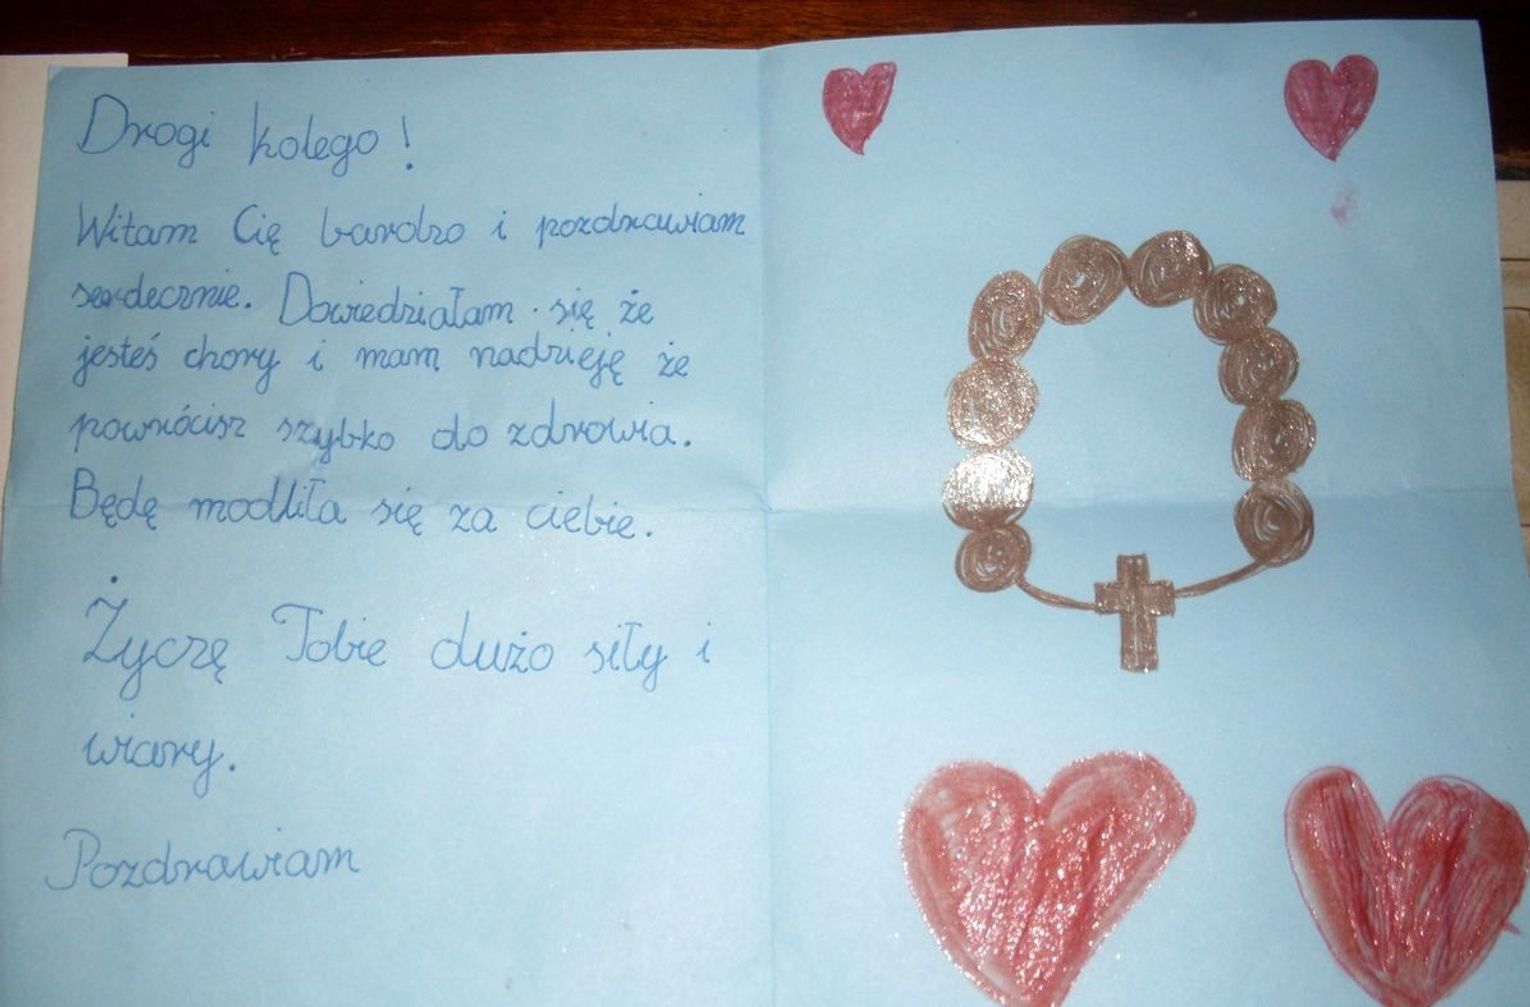 Drogi kolego!
Witam Cię bardzo i pozdrawiam
serdecznie. Dowiedziałam się że
jesteś chory i mam nadzieję że
powrócisz szybko do zdrowia.
Będę modliła się za ciebie.
Życzę Tobie dużo siły i
wiary.
Pozdrawiam